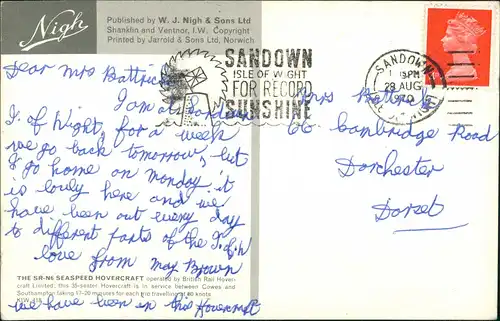 Nigh
Published by W. J. Nigh & Sons Ltd
Shanklin and Ventnor, I.W. Copyright
Printed by Jarrold & Sons Ltd, Norwich
SANDOWN
ISLE OF WIGHT
FOR RECORD
SUNSHINE
SANDOWN
PM
29 AUG
Dear Mrs Battrick
I am at Sandown
I. of Wight, for a week
we go back tomorrow, but
I go home on monday. it
is lovely here and we
have been out every day
to different parts of the I.o.W
love from May Brown
we have been in this Hovercraft
Mrs Battrick
66 Cambridge Road
Dorchester
Dorset
THE SR-N6 SEASPEED HOVERCRAFT operated by British Rail Hover-
craft Limited, this 35-seater Hovercraft is in service between Cowes and
Southampton taking 17-20 minutes for each trip travelling at 60 knots
KIW 415